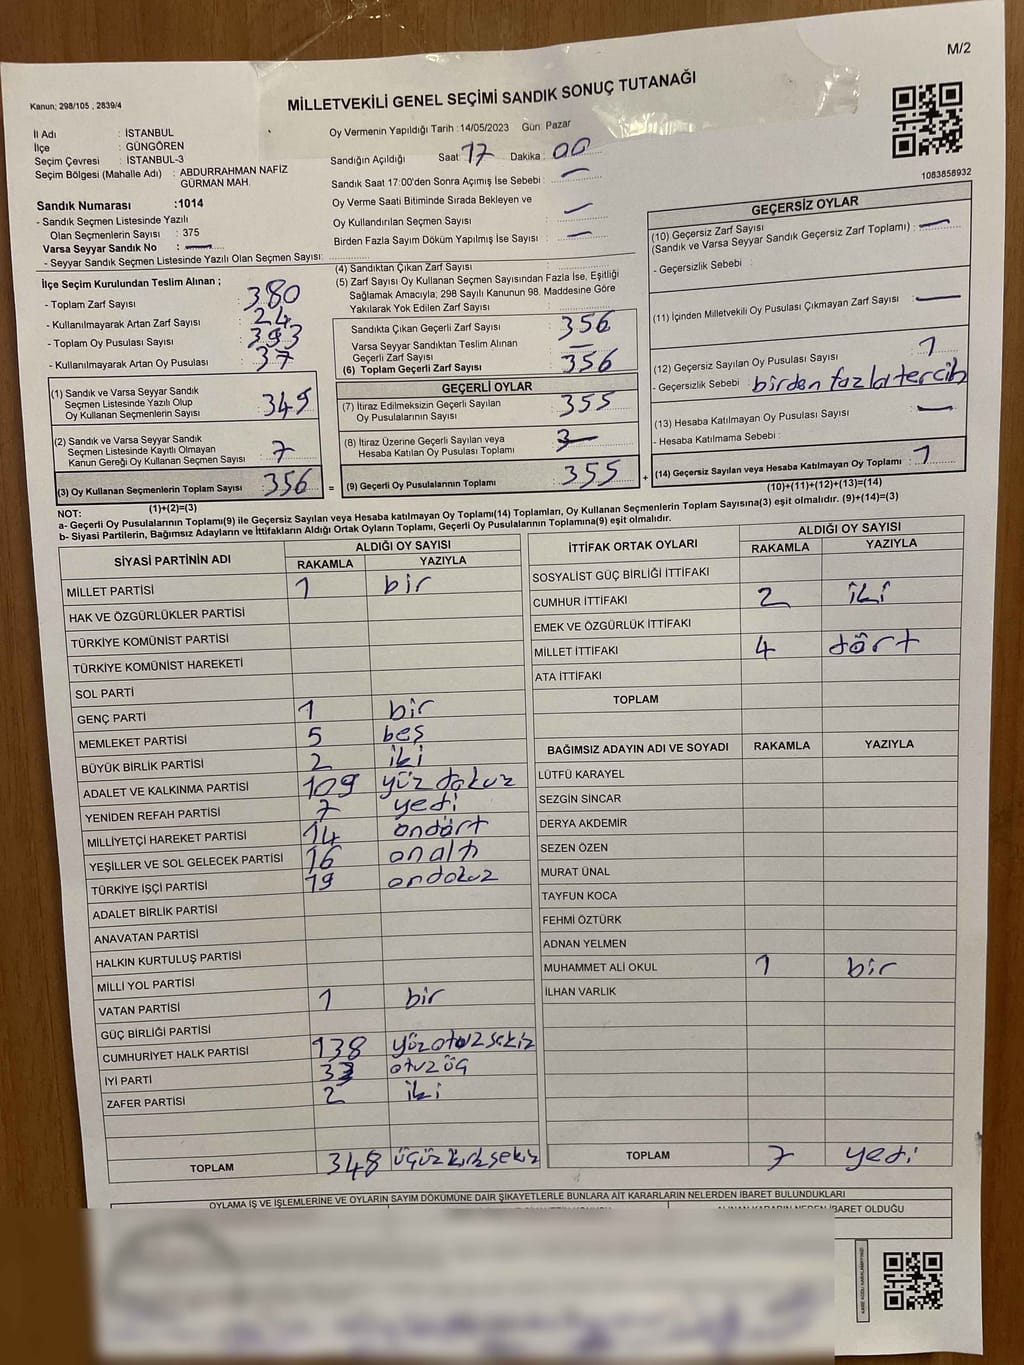 M/2
Kanun; 298/105 , 2839/4
MİLLETVEKİLİ GENEL SEÇİMİ SANDIK SONUÇ TUTANAĞI
İl Adı : İSTANBUL
İlçe : GÜNGÖREN
Seçim Çevresi : İSTANBUL-3
Seçim Bölgesi (Mahalle Adı) : ABDURRAHMAN NAFİZ GÜRMAN MAH.
Sandık Numarası :1014
- Sandık Seçmen Listesinde Yazılı
Olan Seçmenlerin Sayısı : 375
Varsa Seyyar Sandık No : —
- Seyyar Sandık Seçmen Listesinde Yazılı Olan Seçmen Sayısı:
Oy Vermenin Yapıldığı Tarih :14/05/2023 Gün: Pazar
Sandığın Açıldığı Saat 17 Dakika : 00
Sandık Saat 17:00'den Sonra Açımış İse Sebebi : —
Oy Verme Saati Bitiminde Sırada Bekleyen ve
Oy Kullandırılan Seçmen Sayısı —
Birden Fazla Sayım Döküm Yapılmış İse Sayısı : —
1083858932
İlçe Seçim Kurulundan Teslim Alınan ;
- Toplam Zarf Sayısı : 380
- Kullanılmayarak Artan Zarf Sayısı : 24
- Toplam Oy Pusulası Sayısı : 393
- Kullanılmayarak Artan Oy Pusulası : 37
(1) Sandık ve Varsa Seyyar Sandık
Seçmen Listesinde Yazılı Olup
Oy Kullanan Seçmenlerin Sayısı : 349
(2) Sandık ve Varsa Seyyar Sandık
Seçmen Listesinde Kayıtlı Olmayan
Kanun Gereği Oy Kullanan Seçmen Sayısı : 7
(3) Oy Kullanan Seçmenlerin Toplam Sayısı : 356
(1)+(2)=(3)
(4) Sandıktan Çıkan Zarf Sayısı :
(5) Zarf Sayısı Oy Kullanan Seçmen Sayısından Fazla İse, Eşitliği
Sağlamak Amacıyla; 298 Sayılı Kanunun 98. Maddesine Göre
Yakılarak Yok Edilen Zarf Sayısı :
Sandıkta Çıkan Geçerli Zarf Sayısı : 356
Varsa Seyyar Sandıktan Teslim Alınan
Geçerli Zarf Sayısı : —
(6) Toplam Geçerli Zarf Sayısı : 356
GEÇERLİ OYLAR
(7) İtiraz Edilmeksizin Geçerli Sayılan
Oy Pusulalarının Sayısı : 355
(8) İtiraz Üzerine Geçerli Sayılan veya
Hesaba Katılan Oy Pusulası Toplamı : —
= (9) Geçerli Oy Pusulalarının Toplamı : 355 +
GEÇERSİZ OYLAR
(10) Geçersiz Zarf Sayısı
(Sandık ve Varsa Seyyar Sandık Geçersiz Zarf Toplamı) : —
- Geçersizlik Sebebi :
(11) İçinden Milletvekili Oy Pusulası Çıkmayan Zarf Sayısı : —
(12) Geçersiz Sayılan Oy Pusulası Sayısı : 1
- Geçersizlik Sebebi : birden fazla tercih
(13) Hesaba Katılmayan Oy Pusulası Sayısı : —
- Hesaba Katılmama Sebebi :
(14) Geçersiz Sayılan veya Hesaba Katılmayan Oy Toplamı : 1
(10)+(11)+(12)+(13)=(14)
NOT:
a- Geçerli Oy Pusulalarının Toplamı(9) ile Geçersiz Sayılan veya Hesaba katılmayan Oy Toplamı(14) Toplamları, Oy Kullanan Seçmenlerin Toplam Sayısına(3) eşit olmalıdır. (9)+(14)=(3)
b- Siyasi Partilerin, Bağımsız Adayların ve İttifakların Aldığı Ortak Oyların Toplamı, Geçerli Oy Pusulalarının Toplamına(9) eşit olmalıdır.
SİYASİ PARTİNİN ADI ALDIĞI OY SAYISI
RAKAMLA YAZIYLA
MİLLET PARTİSİ 1 bir
HAK VE ÖZGÜRLÜKLER PARTİSİ
TÜRKİYE KOMÜNİST PARTİSİ
TÜRKİYE KOMÜNİST HAREKETİ
SOL PARTİ
GENÇ PARTİ 1 bir
MEMLEKET PARTİSİ 5 beş
BÜYÜK BİRLİK PARTİSİ 2 iki
ADALET VE KALKINMA PARTİSİ 109 yüz dokuz
YENİDEN REFAH PARTİSİ 7 yedi
MİLLİYETÇİ HAREKET PARTİSİ 14 ondört
YEŞİLLER VE SOL GELECEK PARTİSİ 16 onaltı
TÜRKİYE İŞÇİ PARTİSİ 19 ondokuz
ADALET BİRLİK PARTİSİ
ANAVATAN PARTİSİ
HALKIN KURTULUŞ PARTİSİ
MİLLİ YOL PARTİSİ
VATAN PARTİSİ 1 bir
GÜÇ BİRLİĞİ PARTİSİ
CUMHURİYET HALK PARTİSİ 138 yüzotuzsekiz
İYİ PARTİ 33 otuzüç
ZAFER PARTİSİ 2 iki
TOPLAM 348 üçyüzkırksekiz
İTTİFAK ORTAK OYLARI ALDIĞI OY SAYISI
RAKAMLA YAZIYLA
SOSYALİST GÜÇ BİRLİĞİ İTTİFAKI
CUMHUR İTTİFAKI 2 iki
EMEK VE ÖZGÜRLÜK İTTİFAKI
MİLLET İTTİFAKI 4 dört
ATA İTTİFAKI
TOPLAM
BAĞIMSIZ ADAYIN ADI VE SOYADI RAKAMLA YAZIYLA
LÜTFÜ KARAYEL
SEZGİN SİNCAR
DERYA AKDEMİR
SEZEN ÖZEN
MURAT ÜNAL
TAYFUN KOCA
FEHMİ ÖZTÜRK
ADNAN YELMEN
MUHAMMET ALİ OKUL 1 bir
İLHAN VARLIK
TOPLAM 7 yedi
OYLAMA İŞ VE İŞLEMLERİNE VE OYLARIN SAYIM DÖKÜMÜNE DAİR ŞİKAYETLERLE BUNLARA AİT KARARLARIN NELERDEN İBARET BULUNDUKLARI
ALINAN KARARIN NEDEN İBARET OLDUĞU